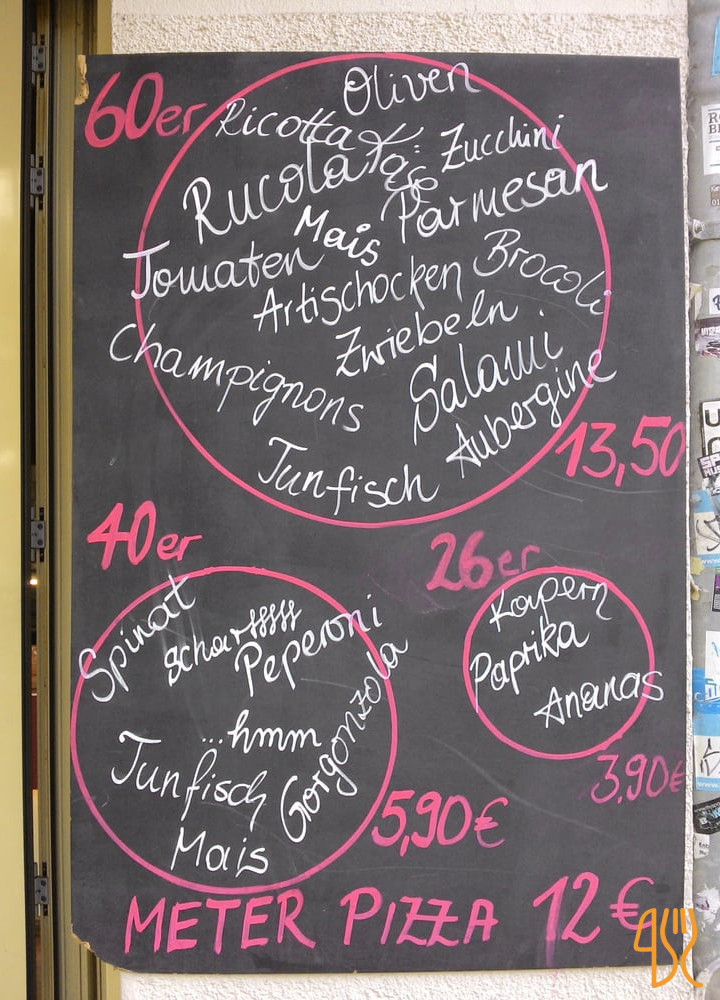 60er
Oliven
Ricotta
Zucchini
Rucola
Parmesan
Mais
Tomaten
Brocoli
Artischocken
Zwiebeln
Champignons
Salami
Aubergine
Tunfisch
13,50
40er
26er
Spinat
scharfffff
Peperoni
...hmm
Gorgonzola
Tunfisch
Mais
5,90€
Kapern
Paprika
Ananas
3,90€
METER PIZZA 12€